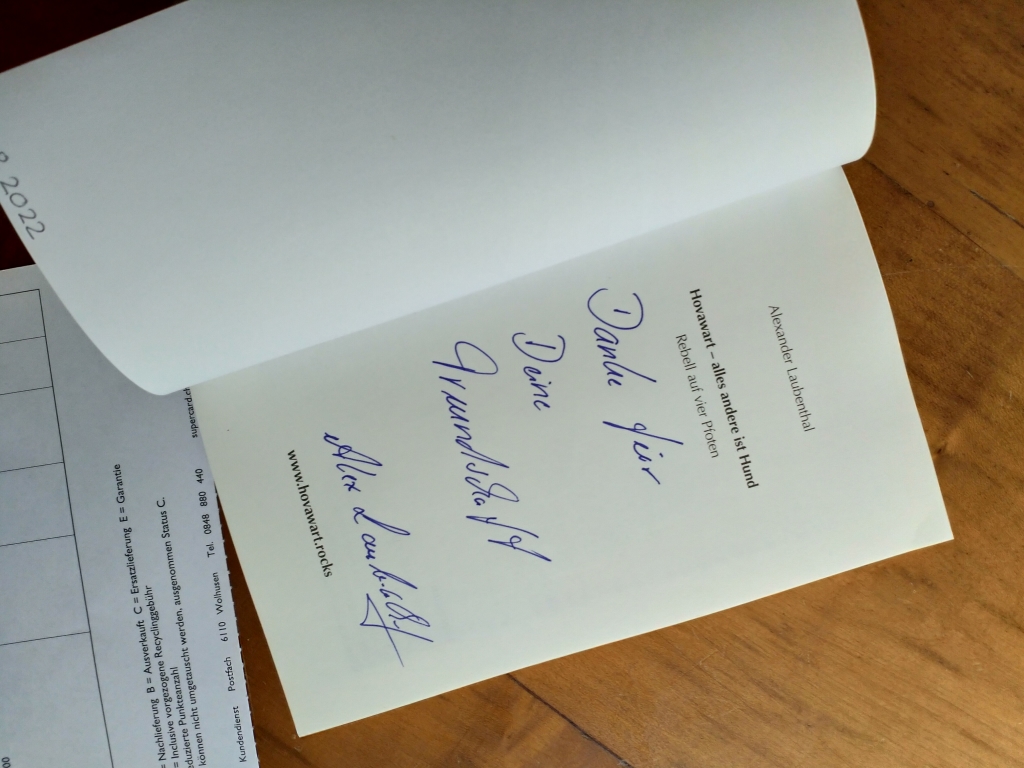 Alexander Laubenthal
Hovawart – alles andere ist Hund
Rebell auf vier Pfoten
Danke für
Deine
Freundschaft
Alex Laubenthal
www.hovawart.rocks
2022
supercard.ch
= Nachlieferung B = Ausverkauft C = Ersatzlieferung E = Garantie
= Inclusive vorgezogene Recyclinggebühr
eduzierte Punkteanzahl
können nicht umgetauscht werden, ausgenommen Status C.
Kundendienst Postfach 6110 Wolhusen Tel. 0848 880 440
00